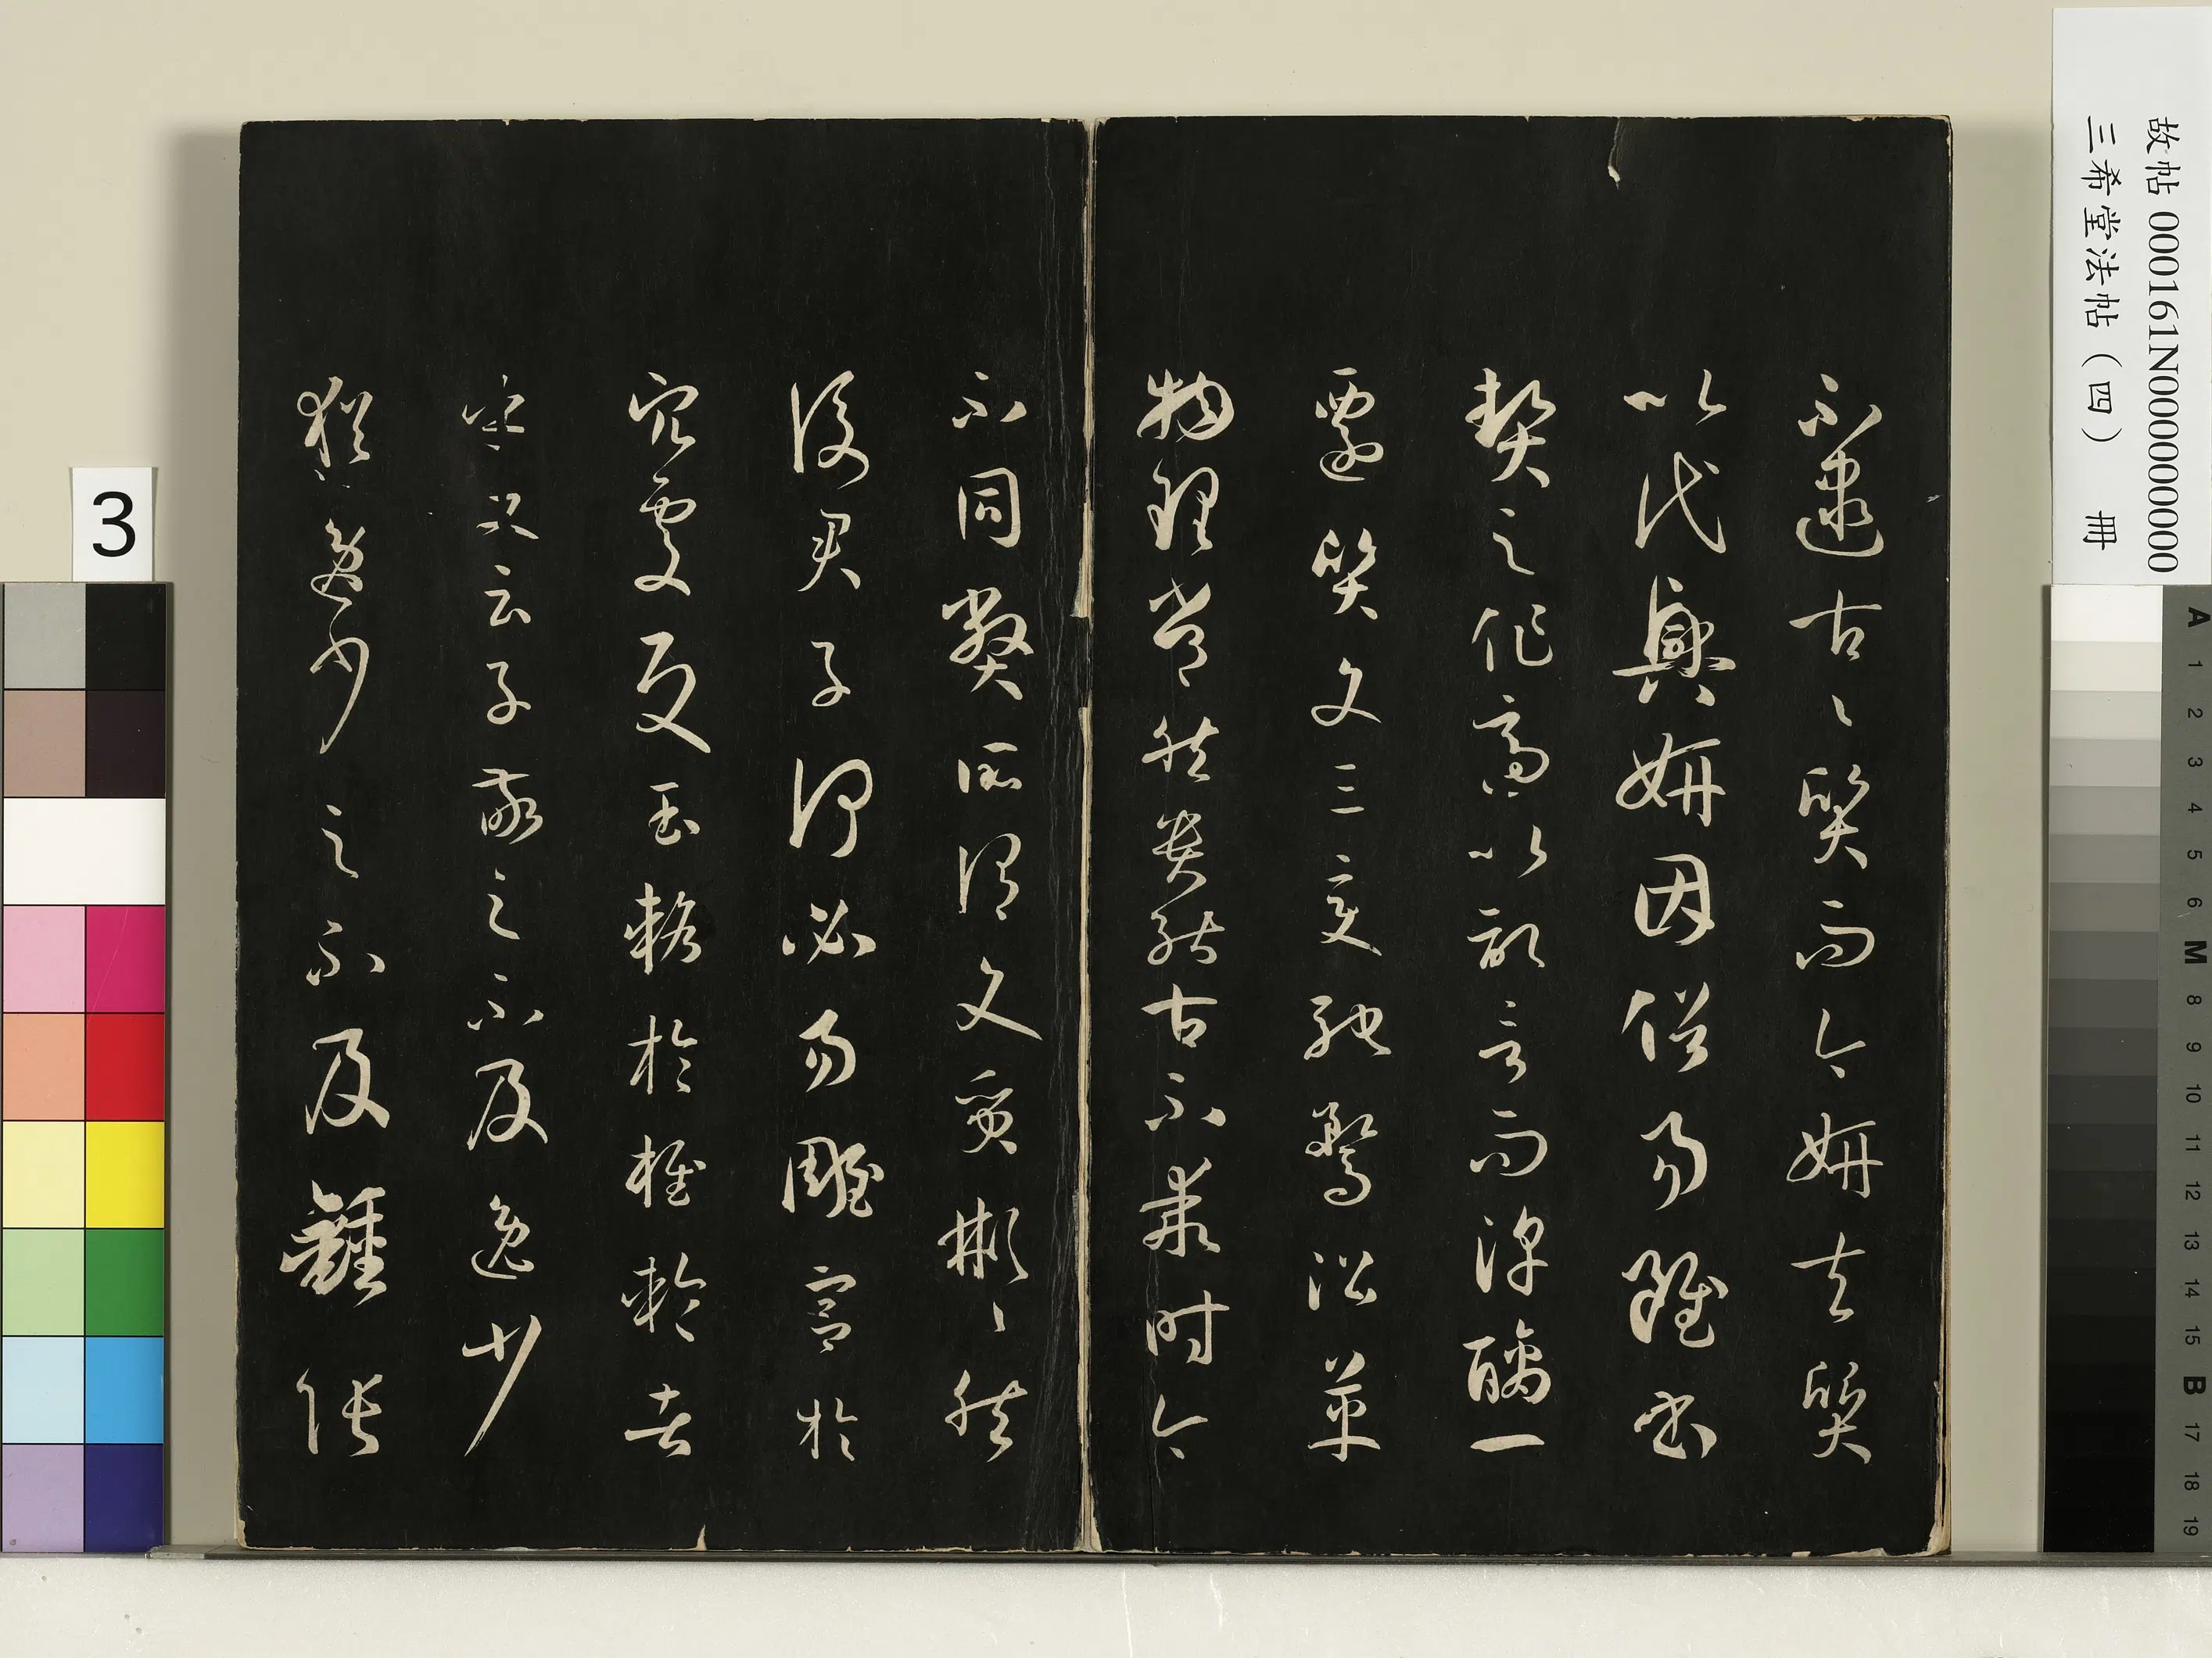 不逮古古質而今妍夫質
以代興妍因俗易雖書
契之作適以記言而淳醨一
遷質文三變馳騖沿革
物理常然貴能古不乖時今
不同弊所謂文質彬彬然
後君子何必易雕宮於
穴處反玉輅於椎輪者
乎又云子敬之不及逸少
猶逸少之不及鍾張
故帖 000161N000000000
三希堂法帖(四) 冊
3
A 1 2 3 4 5 6 M 8 9 10 11 12 13 14 15 B 17 18 19